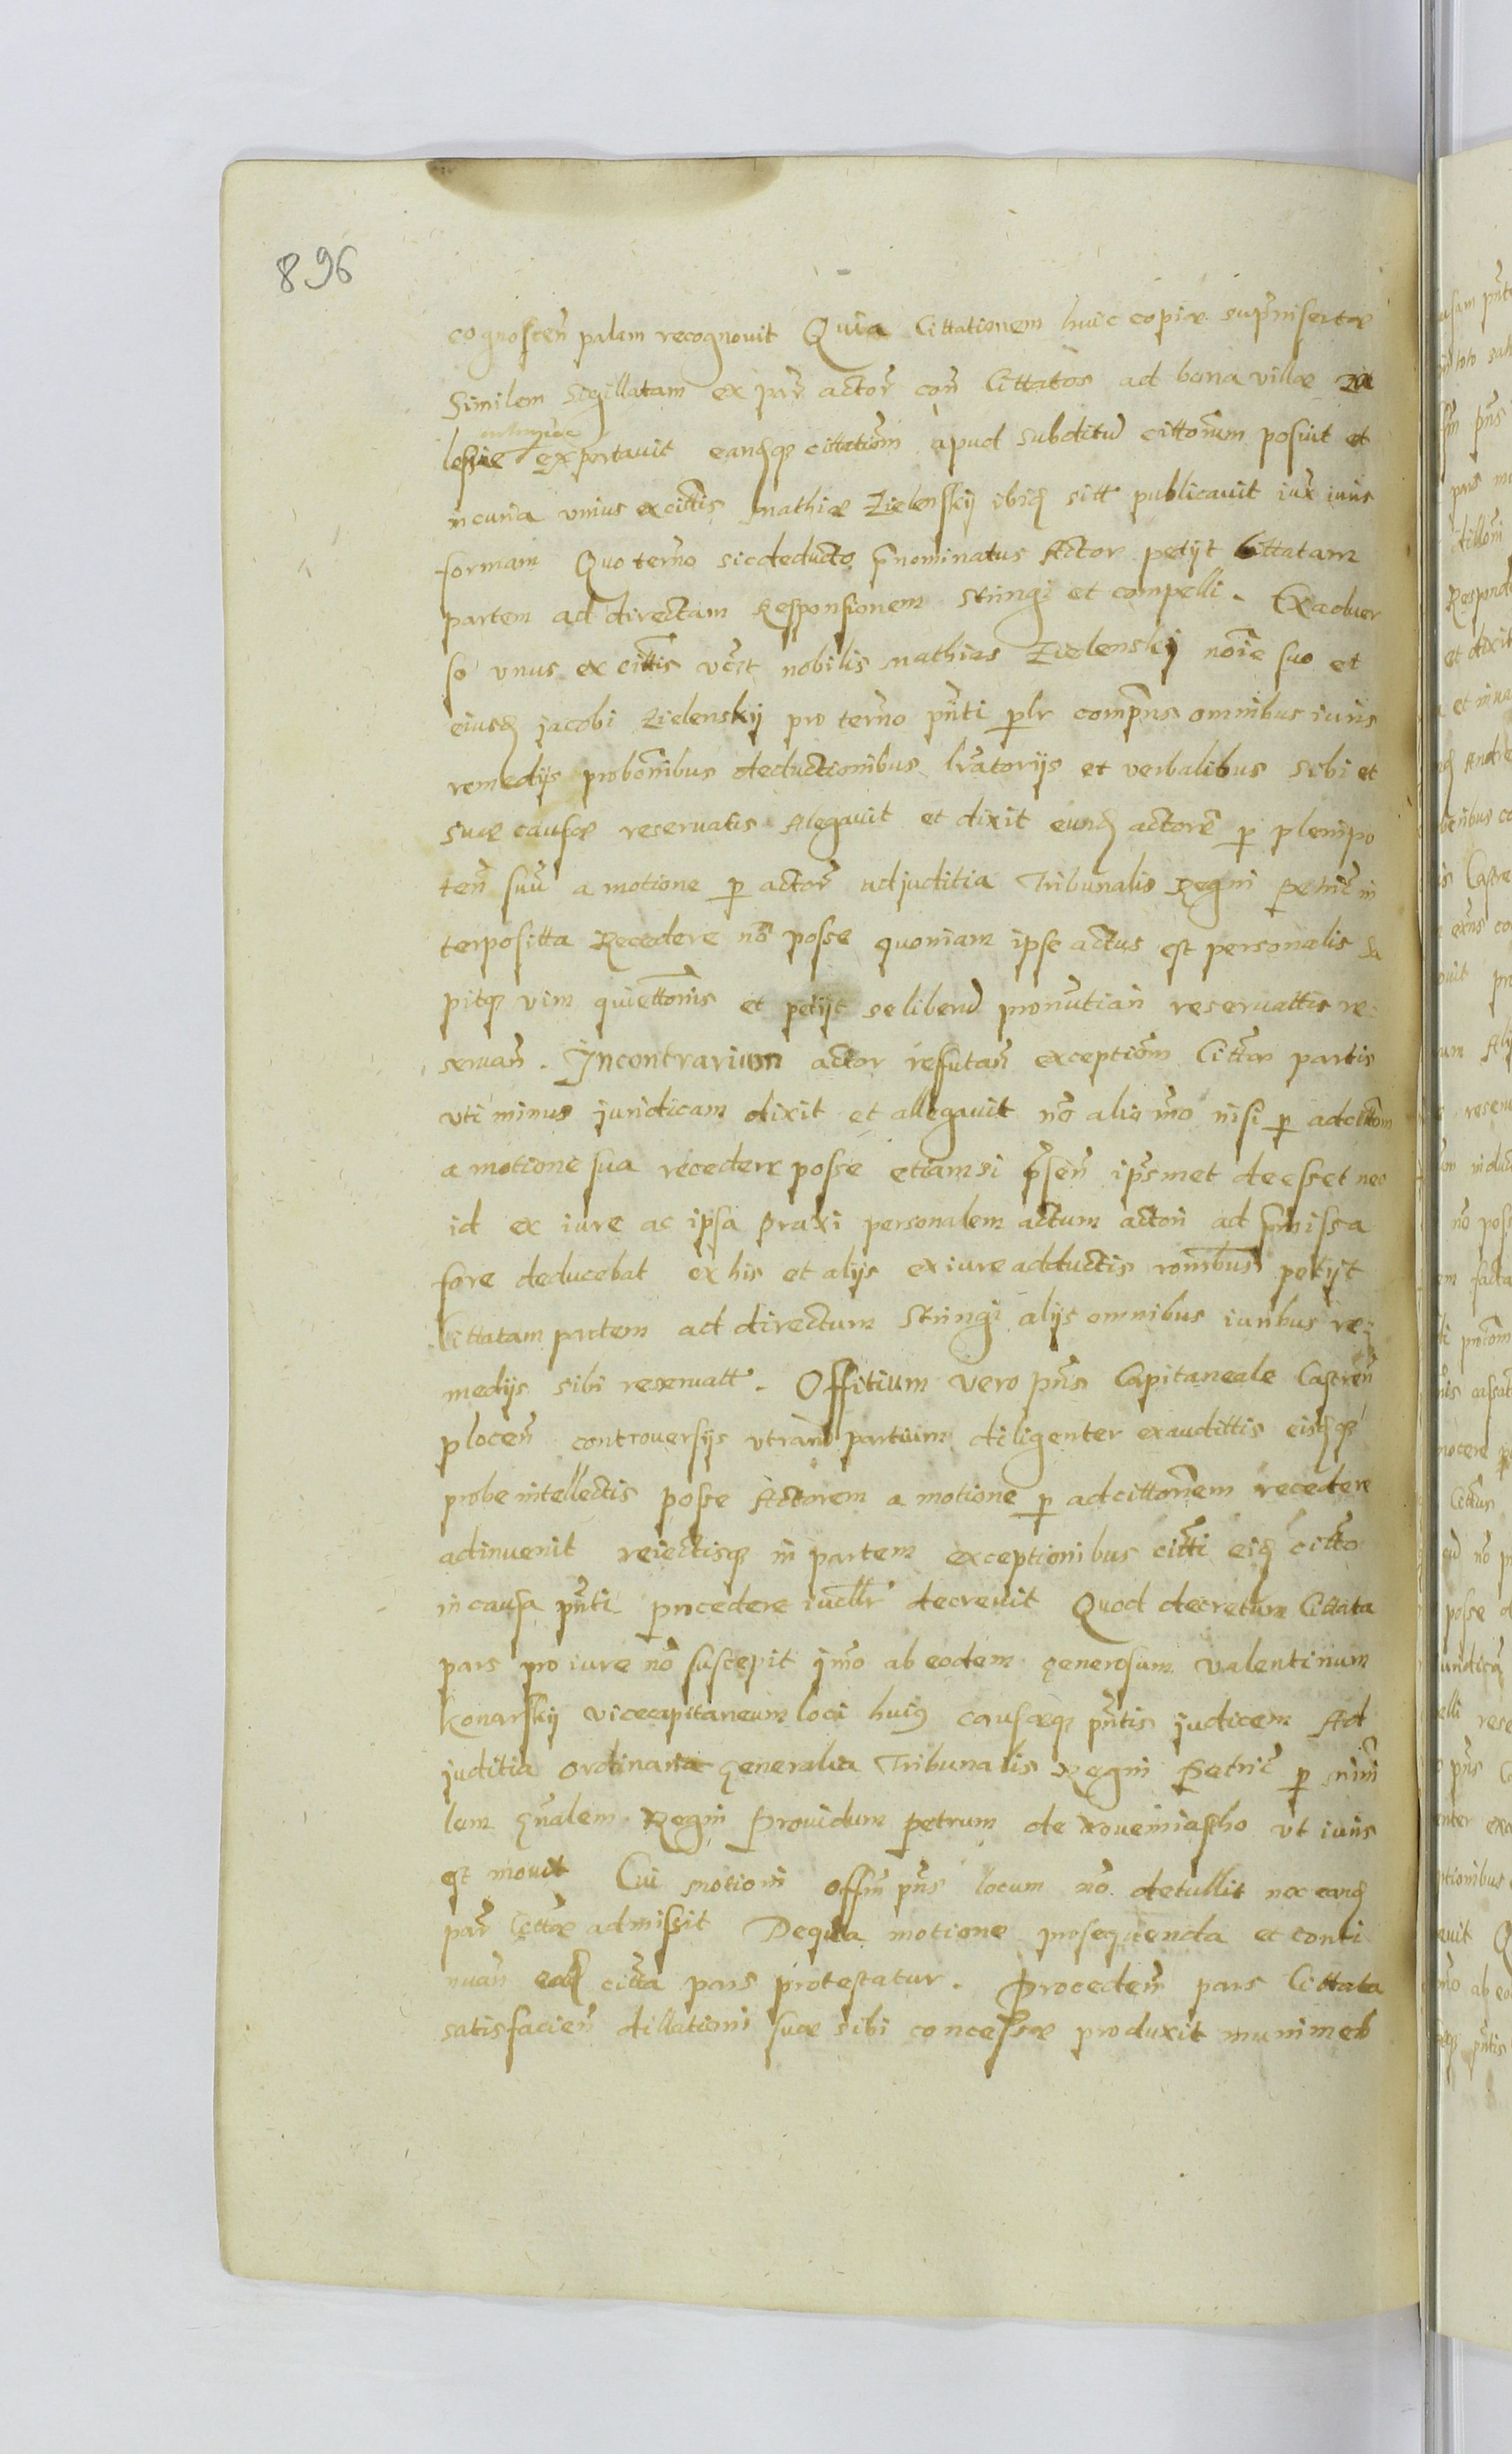 896
cognoscen̄ palam recognovit Quia Cittationem huic copiæ supr̄insertæ
Similem Sigillatam ex par̄ actor̄ con̄ Cittatos ad bona villæ Za
lesie exportavit eandq; cittatiōm apud subditū cittōrum posuit et
in curia unius ex cittis Mathiæ Zielenskij ibid sitt publicavit iux iuris
formam Quo term̄o sic deducto p̄nominatus Actor petijt Cittatam
partem ad directam Responsionem Stringi et compelli. Ex adver
so unus ex cittis vc̄zt nobilis Mathias Zielenskij noīe suo et
eiusd Jacobi Zielenskij pro term̄o pn̄ti plr̄ comp̄ns omnibus iuris
remedijs probōnibus deductionibus lr̄atorijs et verbalibus sibi et
suæ causæ reservatis Alegavit et dixit eund actorē p plenipo
ten̄ suū a motione p actor̄ ad juditia Tribunalis Regni Petric̄ in
terpositta Recedere nō posse quoniam ipse actus est personalis sa
pitq; vim quiettōnis et petijt se liberū pronūtiari reservattis re:
servan̄. In contrarium actor reffutan̄ exceptiōm Cittæ partis
uti minus juridicam dixit et allegavit nō alio mō nisi p adcittōm
a motione sua recedere posse etiamsi p̄sen̄ ipsmet deesset nec
id ex iure ac ipsa praxi personalem actum actori ad p̄missa
fore deducebat ex his et alijs ex iure adductis rōnibus petijt
Cittatam partem ad directum Stringi alijs omnibus iuribus re:
medijs sibi reservatt. Offitium vero pn̄s Capitaneale Castren̄
plocen̄ controversijs utrarū partium diligenter exaudittis eisdq;
probe intellectis posse Actorem a motione p adcittōnem recedere
adinvenit reiectisq; in partem exceptionibus citti eid citto
in causa pn̄ti procedere iudllr̄ decrevit Quod decretum Cittata
pars pro iure nō suscepit ymō ab eodem generosum Valentinum
Konarskij vicecapitaneum loci huiꝰ causæq; pn̄tis judicem Ad
juditia ordinaria generalia Tribunalis Regni Petric̄ p mini
lem gn̄alem Regni Providum Petrum de Novemiastho ut iuris
est movit Cui motioni offm̄ pn̄s locum nō detullit nec eand
par̄ Cittæ admissit De qua motione prosequenda et conti
nuan̄ ead citta pars protestatur. Proceden̄ pars Cittata
satisfacien̄ dillationi suæ sibi concessæ produxit munimen